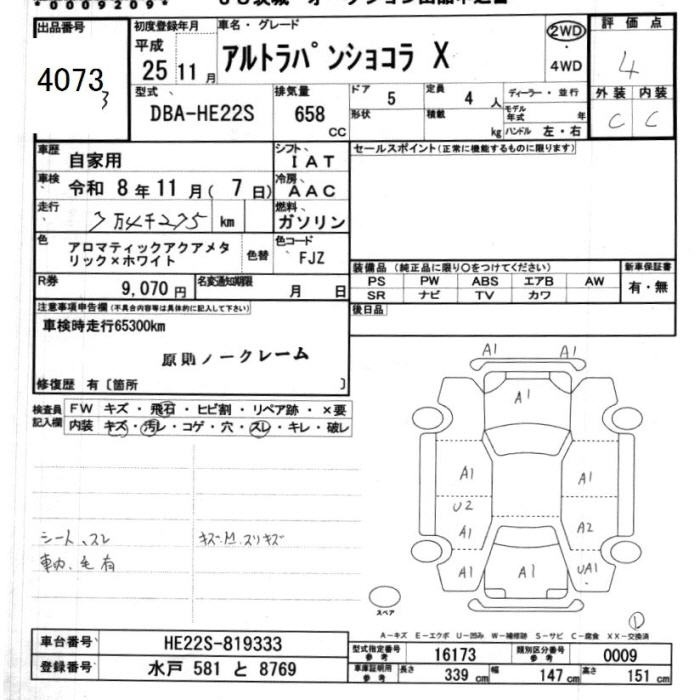 *0009209*
出品番号
4073
3
初度登録年月
平成
25 11月
車名・グレード
アルトラパンショコラ X
2WD
4WD
評価点
4
型式
DBA-HE22S
排気量
658
CC
ドア
5
定員
4 人
形状
積載
kg
ディーラー・並行
モデル年式 年
ハンドル 左・右
外装 内装
C C
車歴
自家用
シフト
I AT
セールスポイント(正常に機能するものに限ります)
車検
令和 8年 11月( 7日)
冷房
AAC
走行
7万4千275 km
燃料
ガソリン
色
アロマティックアクアメタ
リック×ホワイト
色替
色コード
FJZ
装備品(純正品に限り○をつけてください)
新車保証書
PS PW ABS エアB AW
SR ナビ TV カワ
有・無
R券
9,070円
名変通知期限
月 日
後日品
注意事項申告欄(不具合内容等は具体的に記入して下さい)
車検時走行65300km
原則ノークレーム
修復歴 有〔箇所 〕
検査員
記入欄
FW キズ・飛石・ヒビ割・リペア跡・×要
内装 キズ・汚レ・コゲ・穴・スレ・キレ・破レ
シート、スレ
車内、毛有
キズ.M.スリキズ
A1 A1
A1
A1 A1
U2
A1 A2
A1 A1 UA1
スペア
1
A-キズ E-エクボ U-凹み W-補修跡 S-サビ C-腐食 XX-交換済
車台番号
HE22S-819333
登録番号
水戸 581 と 8769
型式指定番号
参考
16173
類別区分番号
参考
0009
車庫証明用
参考
長さ 339 cm 幅 147 cm 高さ 151 cm